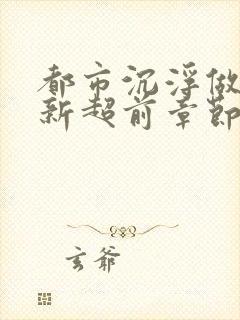 都市沉浮做
新超前章節
玄爷